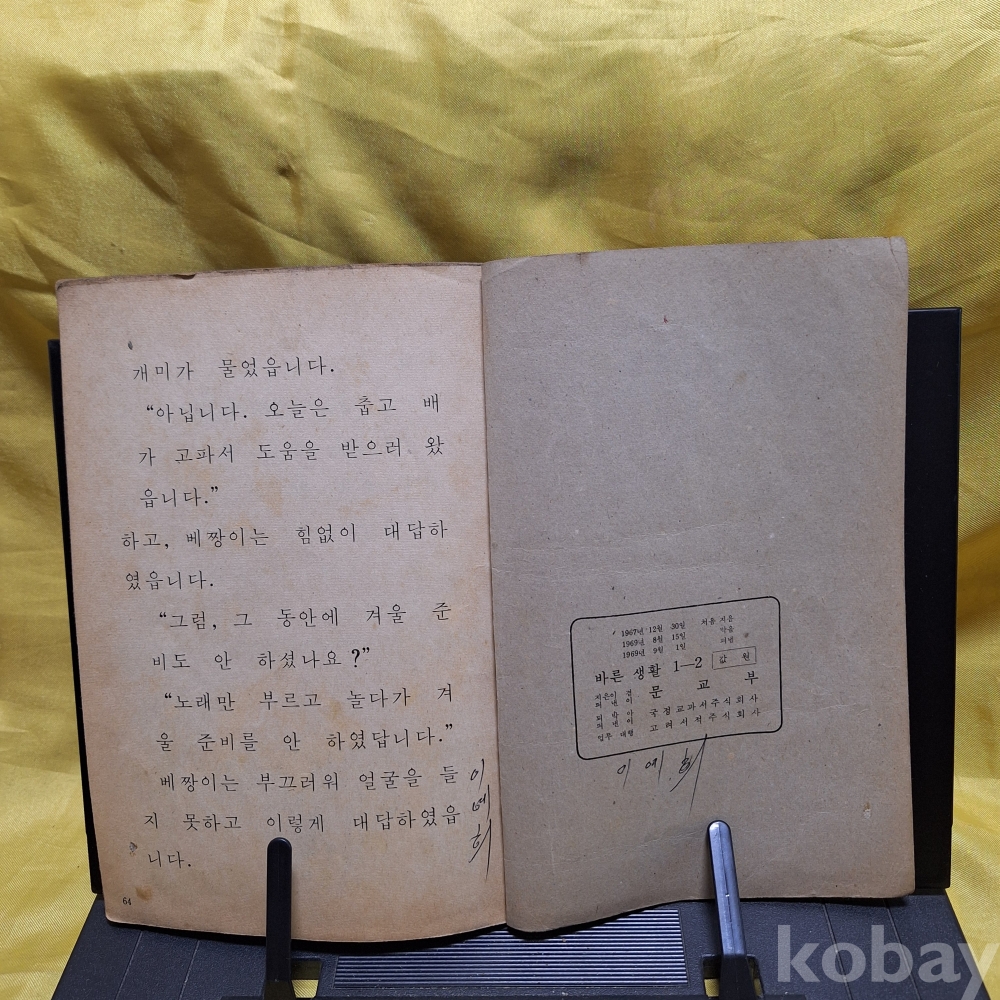 개미가 물었읍니다.
“아닙니다. 오늘은 춥고 배
가 고파서 도움을 받으러 왔
읍니다.”
하고, 베짱이는 힘없이 대답하
였읍니다.
“그럼, 그 동안에 겨울 준
비도 안 하셨나요?”
“노래만 부르고 놀다가 겨
울 준비를 안 하였답니다.”
베짱이는 부끄러워 얼굴을 들
지 못하고 이렇게 대답하였읍
니다.
이예희
64
1967년 12월 30일 처음 지음
1969년 8월 15일 박음
1969년 9월 1일 펴냄
바른 생활 1—2 값 원
지은이 겸 펴낸이 문교부
박아 펴낸이 국정교과서주식회사
업무 대행 고려서적주식회사
이예희
kobay